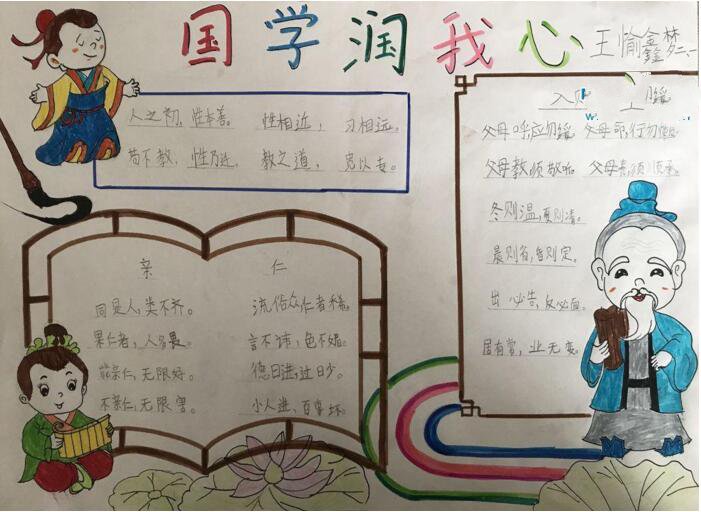 国学润我心 王愉鑫梦二、一
人之初，性本善。 性相近， 习相远。
苟不教， 性乃迁， 教之道， 贵以专。
入则
父母呼，应勿缓 父母命，行勿
父母教，须敬听 父母责，须顺承。
冬则温，夏则清。
晨则省，昏则定。
出必告，反必面。
居有常，业无变。
亲仁
同是人，类不齐。 流俗众，仁者稀。
果仁者，人多畏。 言不讳，色不媚。
能亲仁，无限好。 德日进，过日少。
不亲仁，无限害。 小人进，百事坏。